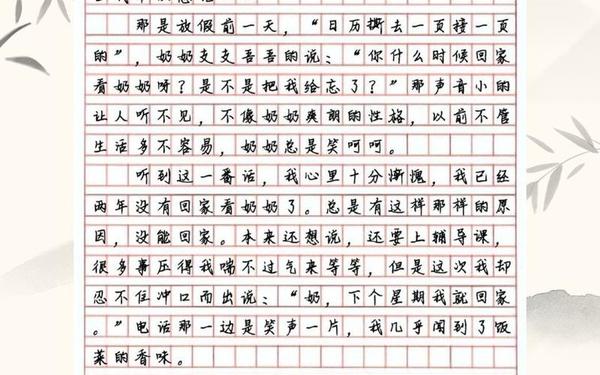 那是放假前一天，“日历撕去一页接一页
的”，奶奶支支吾吾的说：“你什么时候回家
看奶奶呀？是不是把我给忘了？”那声音小的
让人听不见，不像奶奶爽朗的性格，以前不管
生活多不容易，奶奶总是笑呵呵。
听到这一番话，我心里十分惭愧，我已经
两年没有回家看奶奶了。总是有这样那样的原
因，没能回家。本来还想说，还要上辅导课，
很多事压得我喘不过气来等等，但是这次我却
忍不住冲口而出说：“奶，下个星期我就回家
。”电话那一边是笑声一片，我几乎闻到了饭
菜的香味。